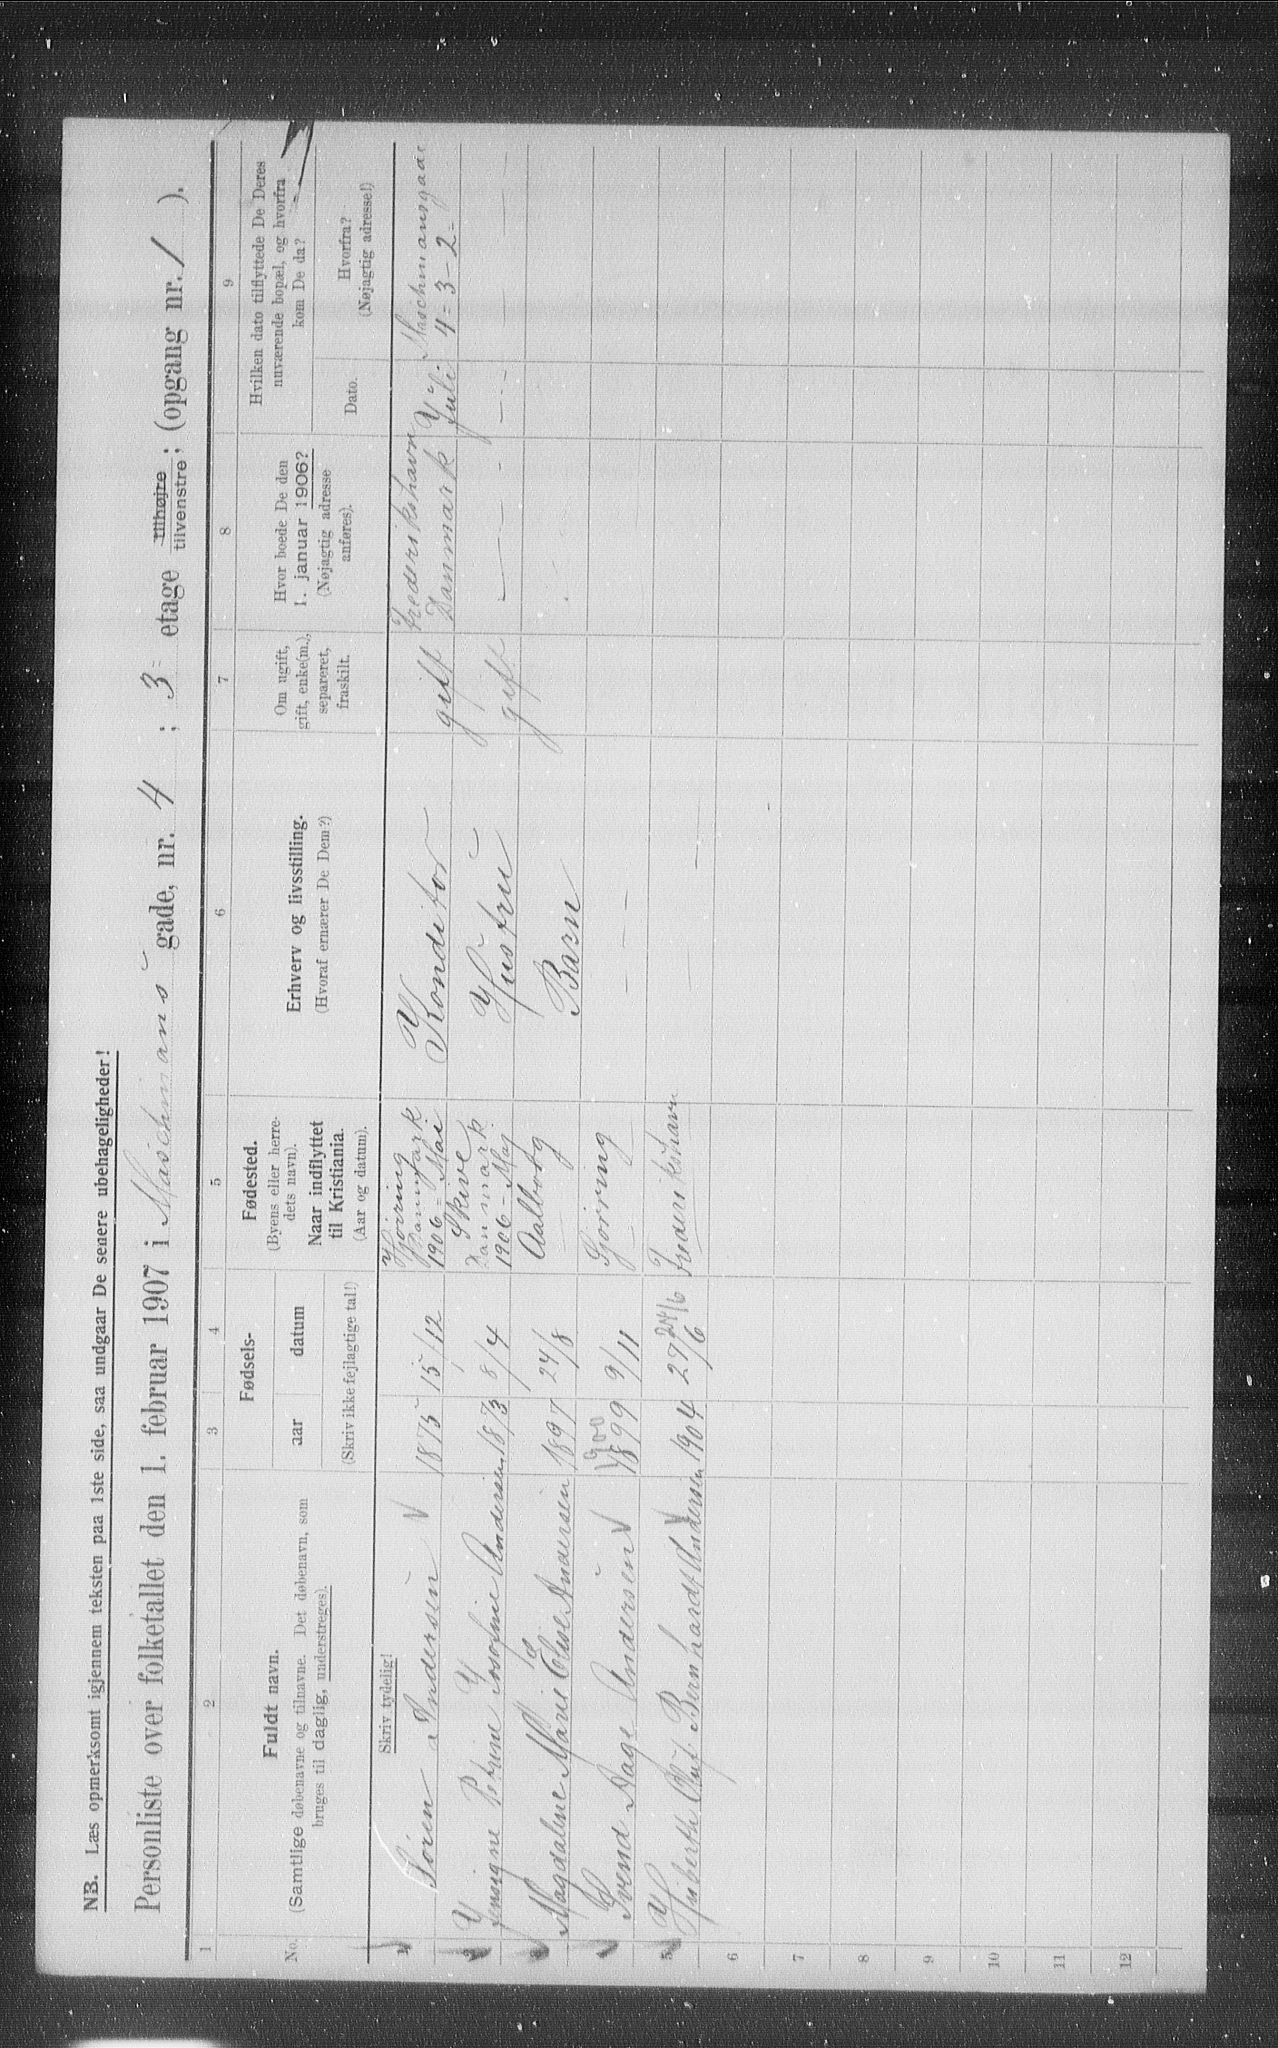 NB. Læs opmerksomt igjennem teksten paa 1ste side, saa undgaar De senere ubehageligheder!
Personliste over folketallet den 1. februar 1907 i Maschmans gade, nr. 4 ; 3 etage tilhøjre tilvenstre ; (opgang nr. 1 ).
1 2 3 4 5 6 7 8 9
No.
Fuldt navn.
(Samtlige døbenavne og tilnavne. Det døbenavn, som
bruges til daglig, understreges).
Fødsels-
aar datum
(Skriv ikke fejlagtige tal!)
Fødested.
(Byens eller herre-
dets navn).
Naar indflyttet
til Kristiania.
(Aar og datum).
Erhverv og livsstilling.
(Hvoraf ernærer De Dem?)
Om ugift,
gift, enke(m.),
separeret,
fraskilt.
Hvor boede De den
1. januar 1906?
(Nøjagtig adresse
anføres).
Hvilken dato tilflyttede De Deres
nuværende bopæl, og hvorfra
kom De da?
Dato.
Hvorfra?
(Nøjagtig adresse!)
Skriv tydelig!
1 Sören Andersen 1875 15/12 Hjörring
Danmark
1906 = Mai Konditor gift Frederikshavn
Danmark Juli Maschmansgade
4 = 3 - 2 =
2 Petrine Andersen 1873 8/4 Skive
Danmark
1906 - Maj Hustru gift — - - - - -
3 Magdaline Marie Andersen 1897 24/8 Aalborg Barn
4 Svend Aage Andersen 1899 1900 9/11 Hjörring — - -
5 Huberth Oluf Bernhardt Andersen 1904 27/6 24/6 Frederikshavn — -
6
7
8
9
10
11
12